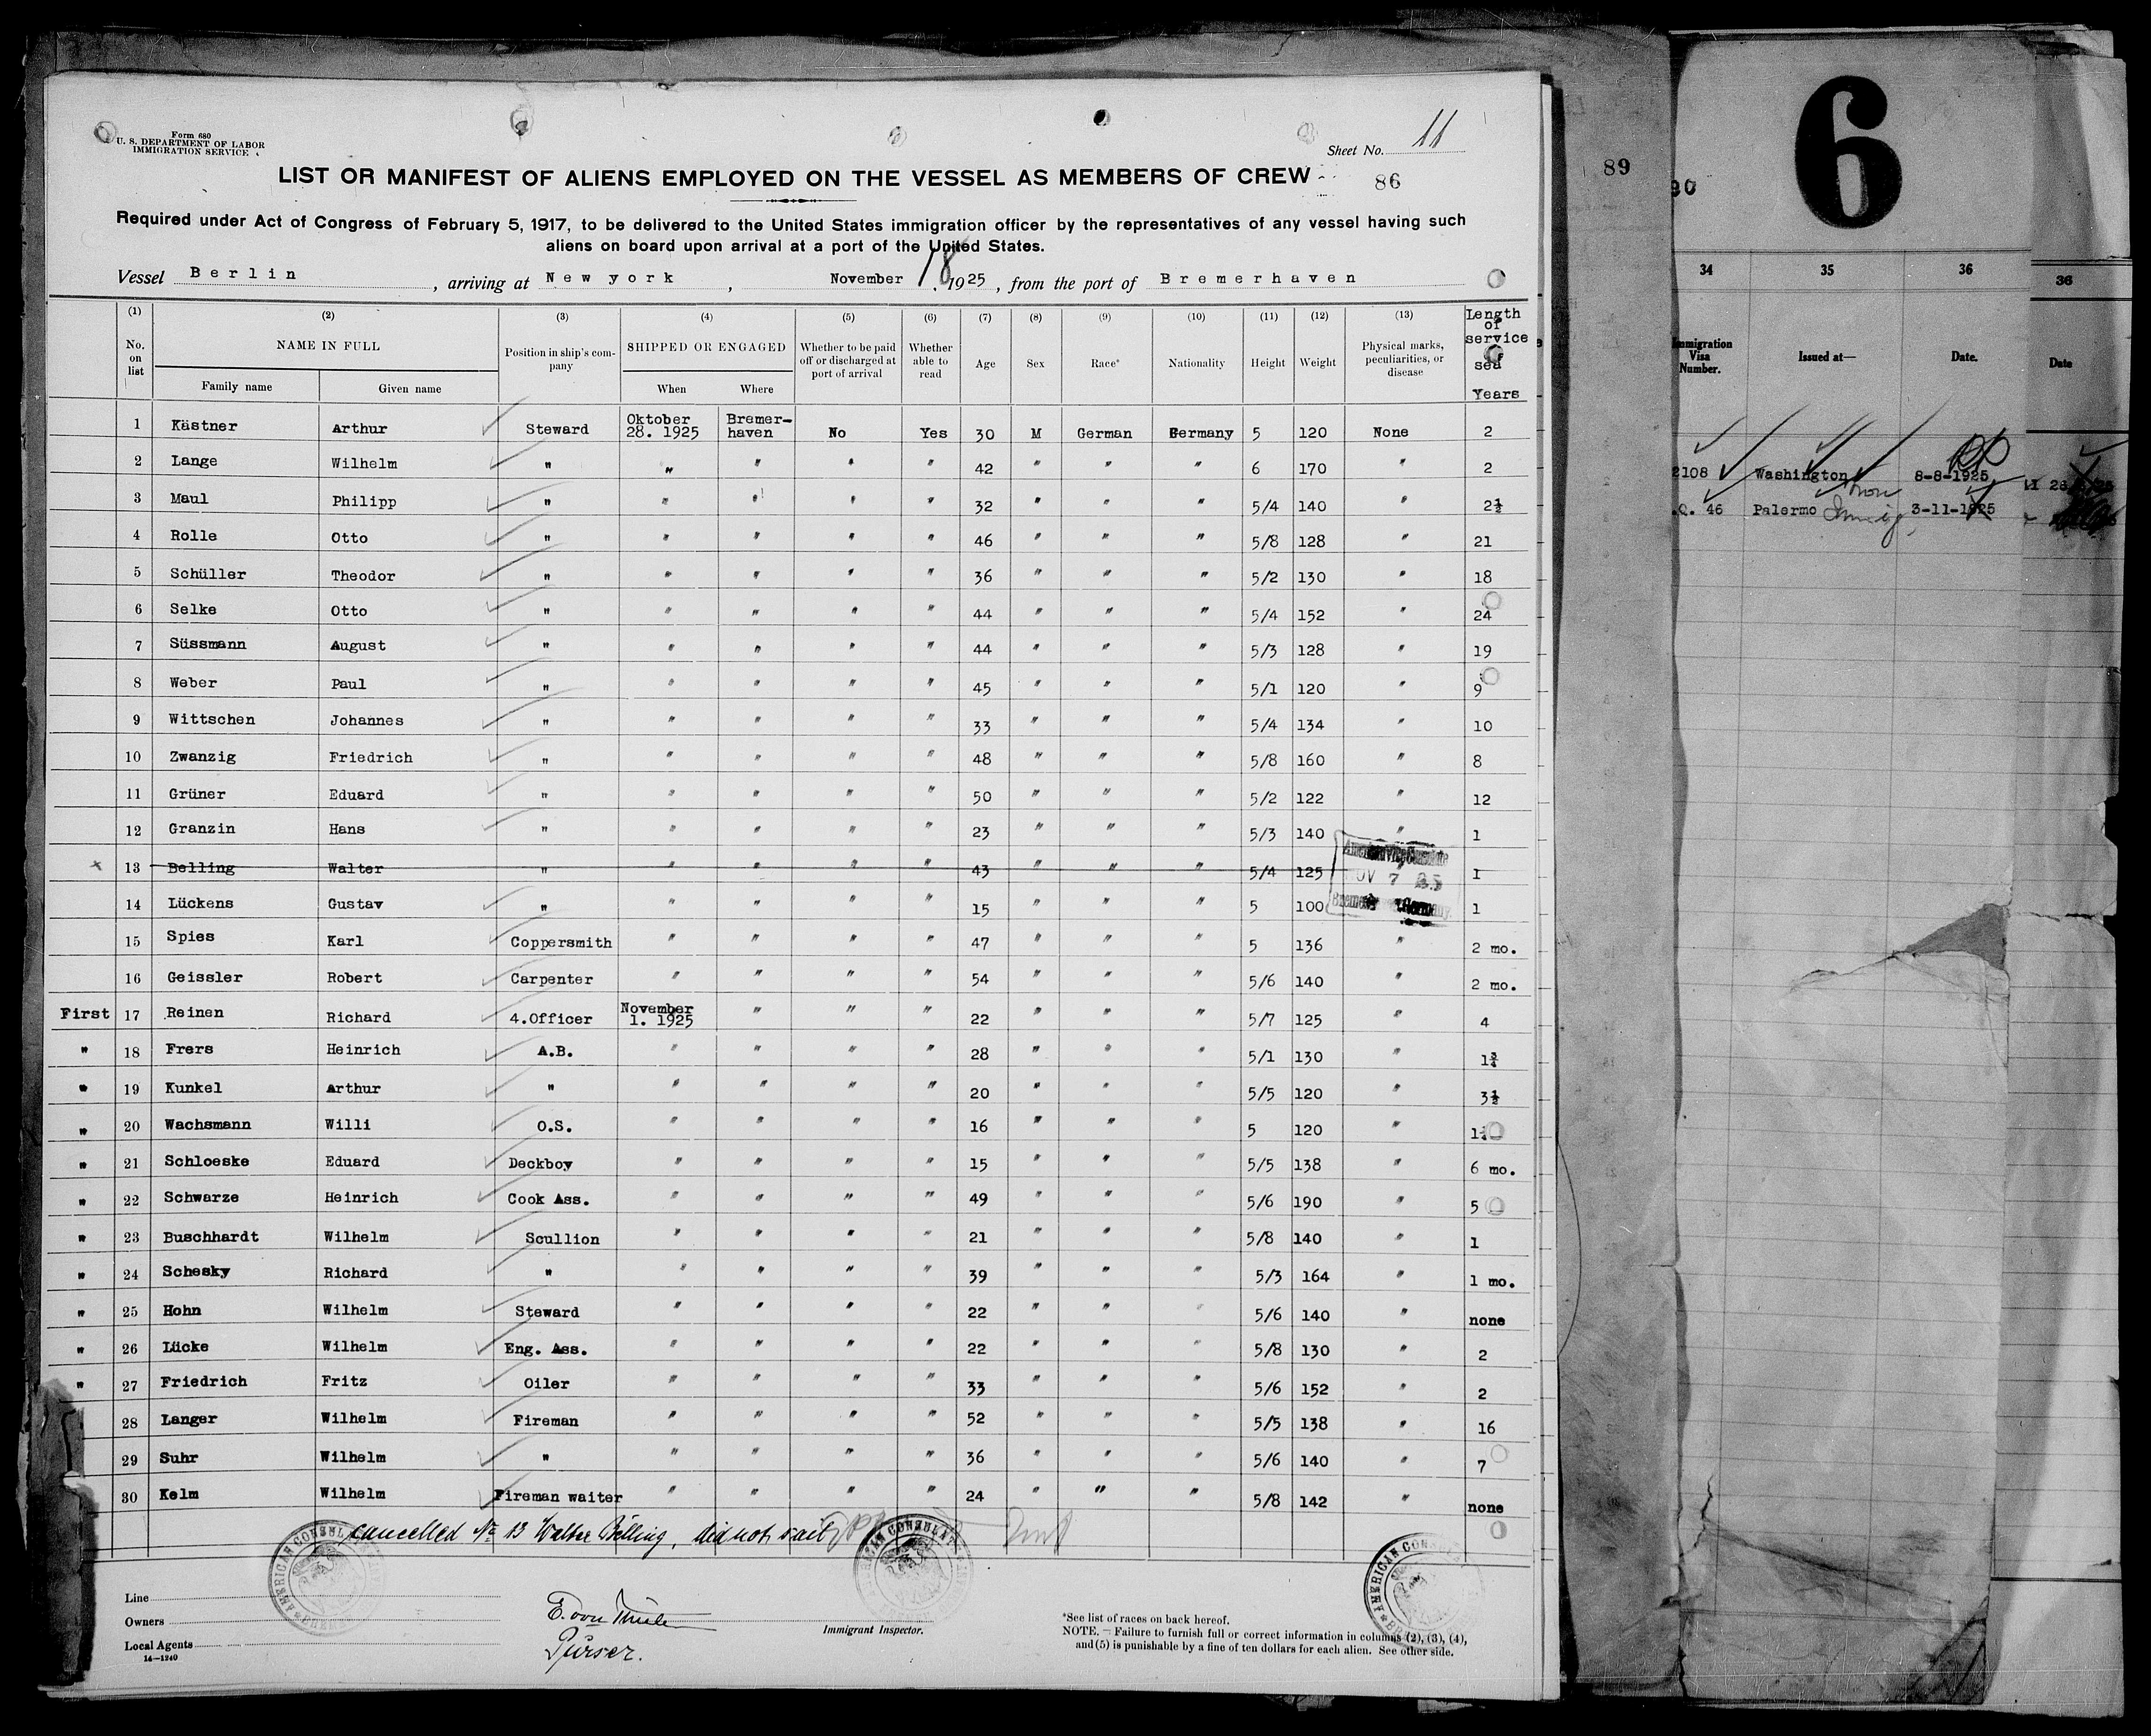 Form 680
U. S. DEPARTMENT OF LABOR
IMMIGRATION SERVICE
Sheet No. 11
LIST OR MANIFEST OF ALIENS EMPLOYED ON THE VESSEL AS MEMBERS OF CREW
86
Required under Act of Congress of February 5, 1917, to be delivered to the United States immigration officer by the representatives of any vessel having such
aliens on board upon arrival at a port of the United States.
Vessel Berlin, arriving at New york, November 18, 1925, from the port of Bremerhaven
(1) (2) (3) (4) (5) (6) (7) (8) (9) (10) (11) (12) (13) Length of service sea Years
No. on list NAME IN FULL Position in ship's company SHIPPED OR ENGAGED Whether to be paid off or discharged at port of arrival Whether able to read Age Sex Race* Nationality Height Weight Physical marks, peculiarities, or disease
Family name Given name When Where
1 Kästner Arthur Steward Oktober 28. 1925 Bremer-haven No Yes 30 M German Germany 5 120 None 2
2 Lange Wilhelm " " " " " 42 " " " 6 170 " 2
3 Maul Philipp " " " " " 32 " " " 5/4 140 " 2½
4 Rolle Otto " " " " " 46 " " " 5/8 128 " 21
5 Schüller Theodor " " " " " 36 " " " 5/2 130 " 18
6 Selke Otto " " " " " 44 " " " 5/4 152 " 24
7 Süssmann August " " " " " 44 " " " 5/3 128 " 19
8 Weber Paul " " " " " 45 " " " 5/1 120 " 9
9 Wittschen Johannes " " " " " 33 " " " 5/4 134 " 10
10 Zwanzig Friedrich " " " " " 48 " " " 5/8 160 " 8
11 Grüner Eduard " " " " " 50 " " " 5/2 122 " 12
12 Granzin Hans " " " " " 23 " " " 5/3 140 " 1
x 13 Belling Walter " " " " " 43 " " " 5/4 125 1
NOV 7 25
Germany
14 Lückens Gustav " " " " " 15 " " " 5 100 1
15 Spies Karl Coppersmith " " " " 47 " " " 5 136 " 2 mo.
16 Geissler Robert Carpenter " " " " 54 " " " 5/6 140 " 2 mo.
First 17 Reinen Richard 4.Officer November 1. 1925 " " " 22 " " " 5/7 125 " 4
" 18 Frers Heinrich A.B. " " " " 28 " " " 5/1 130 " 1¾
" 19 Kunkel Arthur " " " " " 20 " " " 5/5 120 " 3½
" 20 Wachsmann Willi O.S. " " " " 16 " " " 5 120 "
" 21 Schloeske Eduard Deckboy " " " " 15 " " " 5/5 138 " 6 mo.
" 22 Schwarze Heinrich Cook Ass. " " " " 49 " " " 5/6 190 " 5
" 23 Buschhardt Wilhelm Scullion " " " " 21 " " " 5/8 140 " 1
" 24 Schesky Richard " " " " " 39 " " " 5/3 164 " 1 mo.
" 25 Hohn Wilhelm Steward " " " " 22 " " " 5/6 140 " none
" 26 Lücke Wilhelm Eng. Ass. " " " " 22 " " " 5/8 130 " 2
" 27 Friedrich Fritz Oiler " " " " 33 " " " 5/6 152 " 2
28 Langer Wilhelm Fireman " " " " 52 " " " 5/5 138 " 16
29 Suhr Wilhelm " " " " " 36 " " " 5/6 140 " 7
30 Kelm Wilhelm Fireman waiter " " " " 24 " " " 5/8 142 " none
cancelled No 13 Walter Belling, did not sail
AMERICAN CONSUL
AMERICAN CONSULAT
AMERICAN CONSUL
Line
Owners
Local Agents
14—1240
E. von
Purser.
Immigrant Inspector.
*See list of races on back hereof.
NOTE.—Failure to furnish full or correct information in columns (2), (3), (4),
and (5) is punishable by a fine of ten dollars for each alien. See other side.
89
90
6
34 35 36
36
Immigration Visa Number. Issued at— Date.
Date
2108 Washington 8-8-1925
46 Palermo 3-11-1925